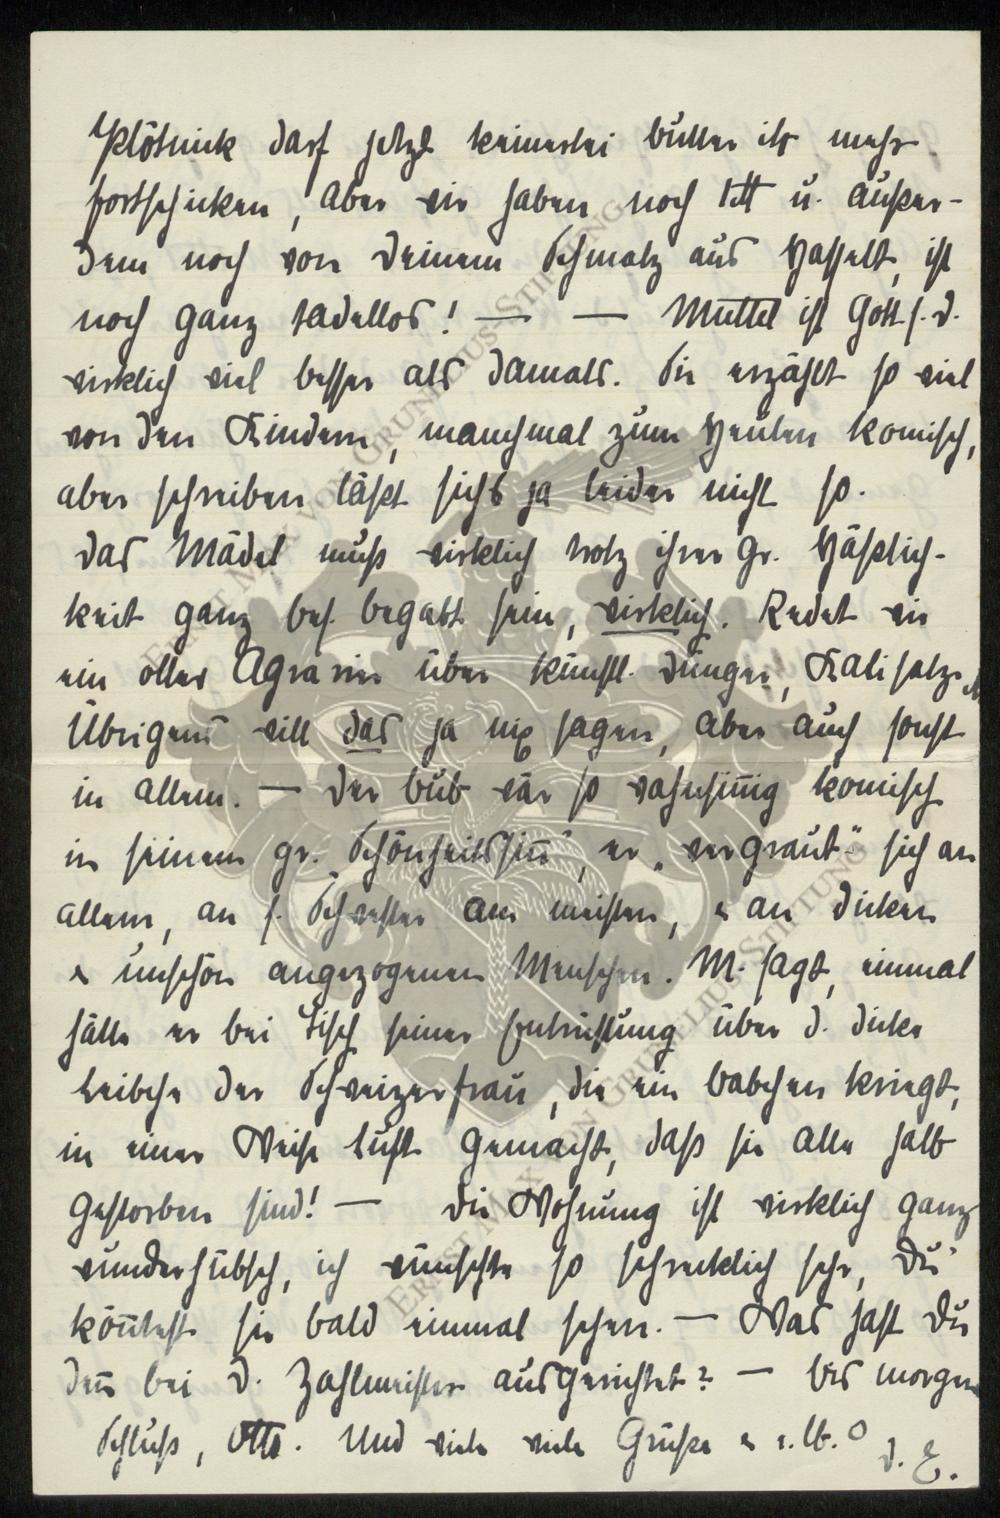 Klötnick darf jetzt keinerlei butter etc mehr
fortschicken, aber wir haben noch 1 ℔ u. außer-
dem noch von Deinem Schmalz aus Hasselt, ist
noch ganz tadellos! — — Muttel ist Gott s. d.
wirklich viel besser als damals. Sie erzählt so viel
von den Kindern, manchmal zum Heulen komisch,
aber schreiben läßt sichs ja leider nicht so.
das Mädel muß wirklich trotz ihrer gr. Häßlich-
keit ganz bes. begabt sein, wirklich. Redet wie
ein oller Agrarier über künstl. dünger, Kalisalze
Übrigens will das ja nix sagen, aber auch sonst
in allem. — der bub wär so wahnsinnig komisch
in seinem gr. Schönheitssinn, er „vergraut" sich an
allem, an s. Schwester am meisten, & an dicken
& unschön angezogenen Menschen. M. sagt, einmal
hätte er bei Tisch seiner Entrüstung über d. dicke
Leibche der Schweizerfrau, die ein babchen kriegt,
in einer Weise luft gemacht, daß sie alle halb
gestorben sind! — die Wohnung ist wirklich ganz
wunderhübsch, ich wünschte so schrecklich sehr, Du
könntest sie bald einmal sehen. — Was hast Du
denn bei d. Zahlmeister ausgerichtet? — bis morgen
Schluß, Otto. Und viele viele Grüße & e. lb. O
d. E.
ERNST MAX VON GRUNELIUS-STIFTUNG
ERNST MAX VON GRUNELIUS-STIFTUNG